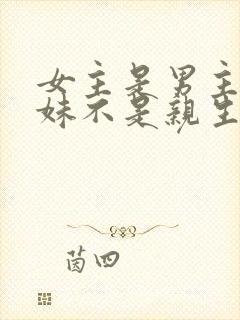 女主是男主
妹不是親生
茵四